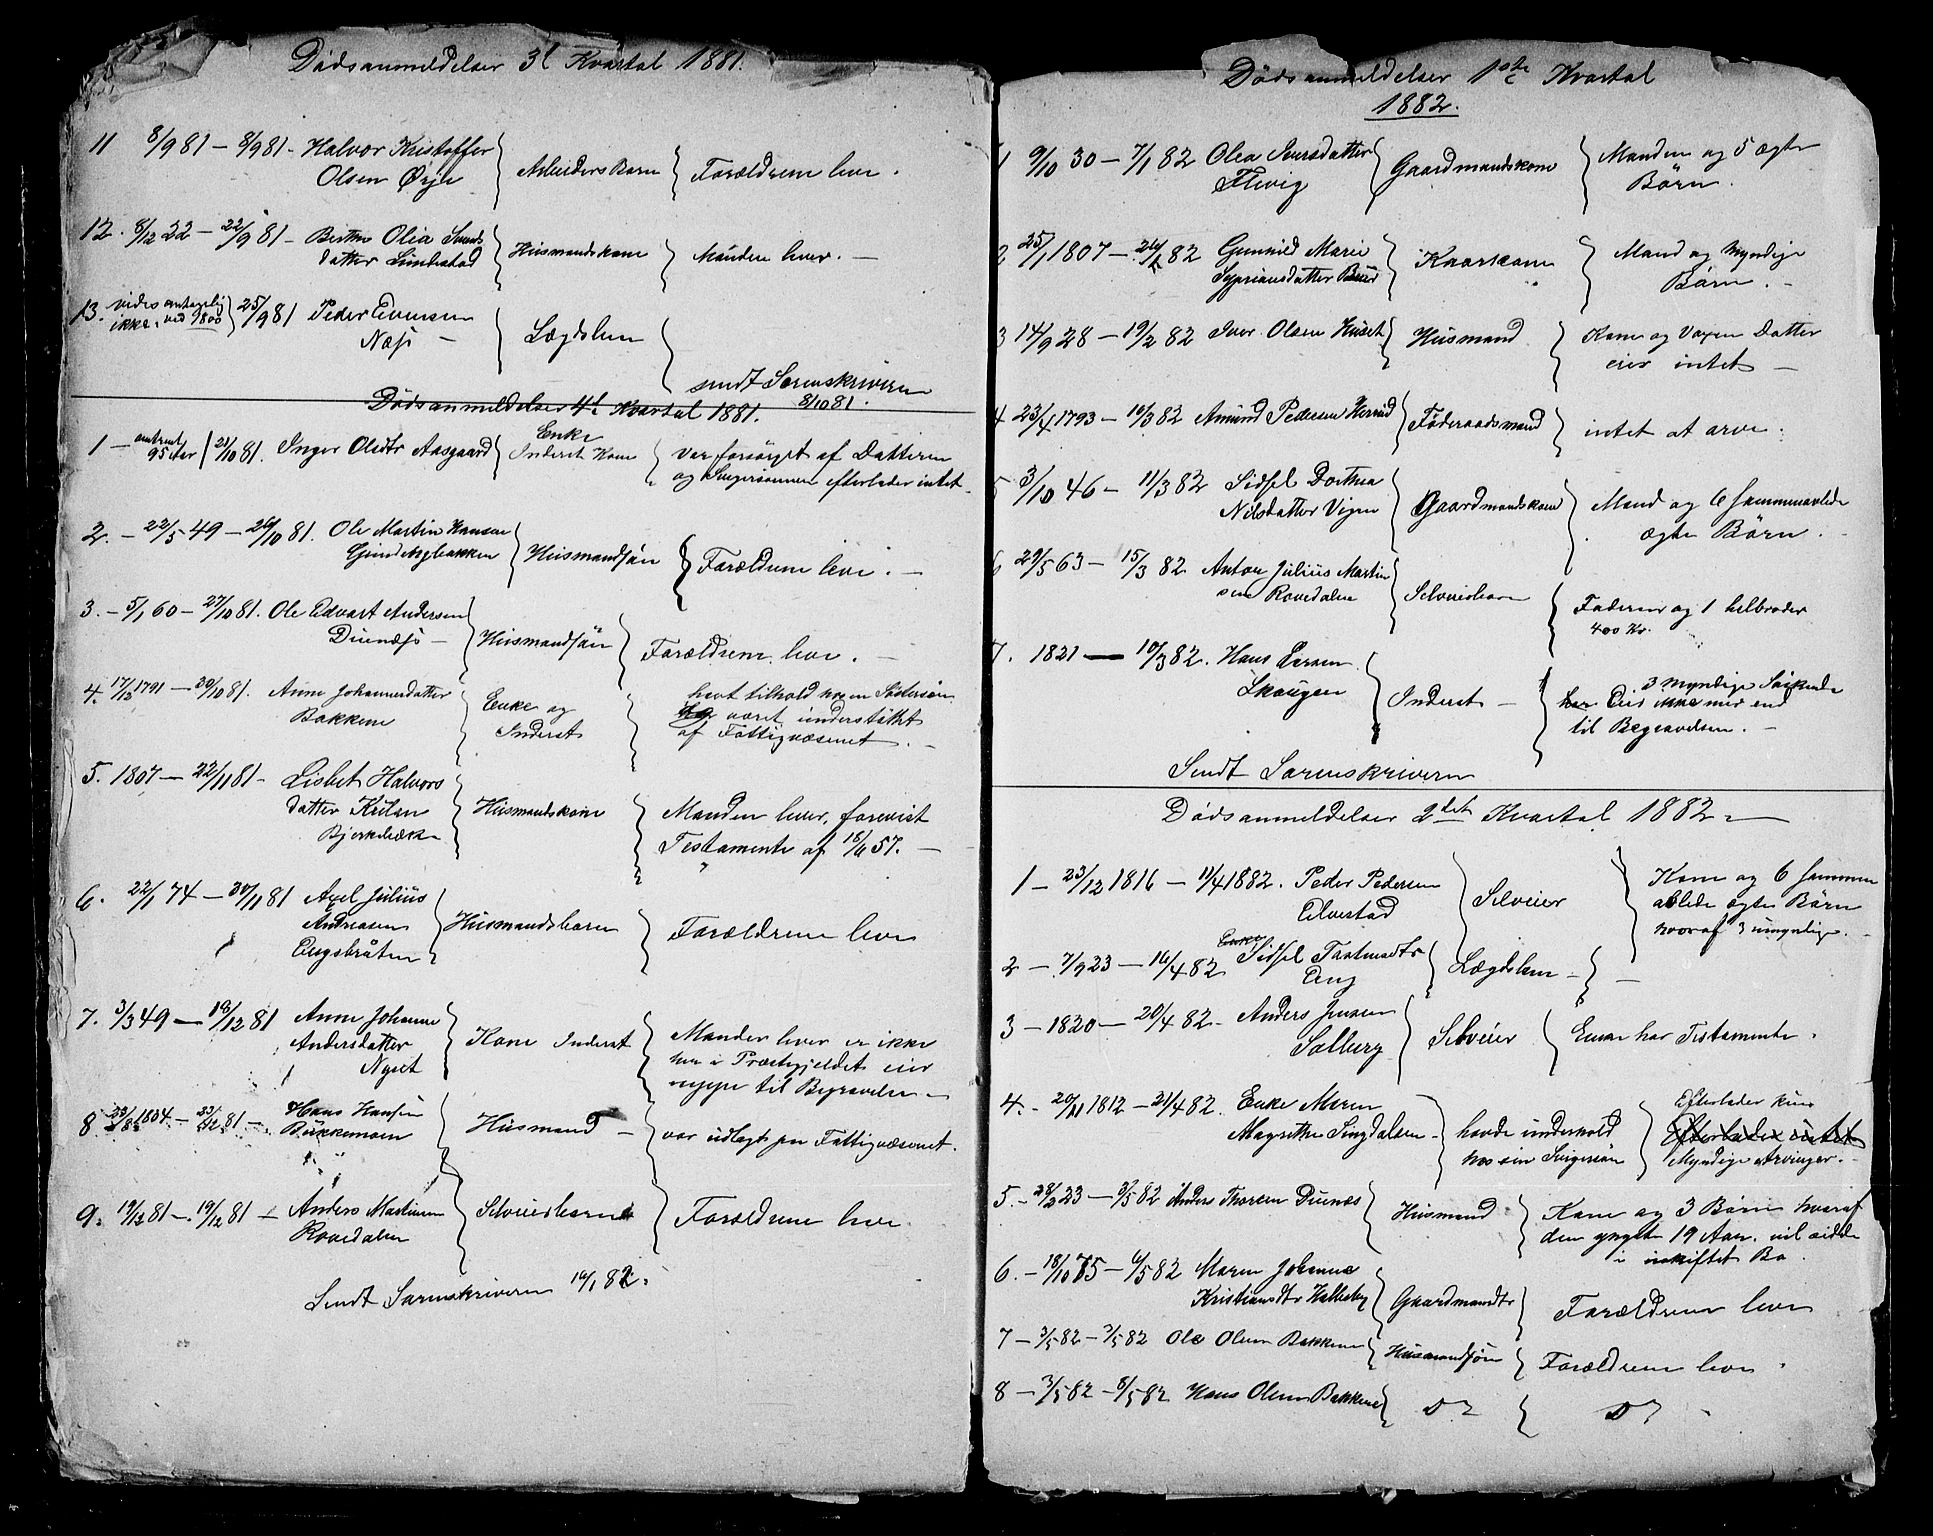 Dødsanmeldelser 3t Kvartal 1881.
11 8/9 81 – 8/9 81 – Halvor Kristoffer Arbeiders Barn Forældrene leve.
Olsen Øyle
12. 8/12 22 – 22/9 81 – Berthe Olia Svends Husmandskone Manden lever. —
datter Limbestad
13. vides antagelig 25/9 81 Peder Evensen Lægdslem
ikke, ved 1800 Næss —
sendt Sorenskriveren
8/10 81.
Dødsanmeldelser 4d Kvartal 1881.
Enke
1 – omtrent 21/10 81. Inger Olsdtr Aasgaard Inderst Kone var forsørget af Datteren
95 Aar og Svigersønnen efterlader intet.
2. – 22/5 49 – 26/10 81. Ole Martin Hansen Husmandssøn Forældrene leve. —
3. – 5/1 60 – 27/10 81. Ole Edvart Andersen Husmandssøn Forældrene leve. —
Duenæss —
4. 17/12 1791 – 30/10 81. Anne Johannesdatter Enke og havt tilhold hos en Søstersøn
Bakkene Inderst været understøttet
af Fattigvæsenet. —
5. 1807 – 22/11 81 – Lisbet Halvors Husmandskone Manden lever, forevist
datter Keilen Testamente af 18/6 57. —
Bjerkebæk
6. 22/1 74 – 30/11 81 Axel Julius Husmandsbarn Forældrene leve
Andreasen
Engebråten
7. 3/3 49 – 19/12 81 Anne Johanne Kone Inderst Manden lever er ikke
Andersdatter her i Præstegjeldet eier
Nyset neppe til Begravelse –
8 23/8 1804 – 23/12 81 – Hans Hansen Husmand – var udlagt paa Fattigvæsenet.
Bækkemoen
9. 19/12 81 – 19/12 81 – Anders Martinsen Selveierbarn Forældrene leve.
Rovedalen
Sendt Sorenskriveren 16/1 82.
Dødsanmeldelser 1ste Kvartal
1882.
1 9/10 30 – 7/1 82 Olea Iversdatter Gaardmandskone Manden og 5 ægte
Flevig Børn.
2 25/1 1807 – 26/1 82 Gunnild Marie Kaarkone Mand og Myndige
Sypriansdatter Børn. –
3 14/9 28 – 19/2 82 Iver Olsen Huset Husmand Kone og Voxen Datter
eier intet —
4 23/4 1793 – 10/3 82 Amund Pedersen Føderaadsmand intet at arve.
5 3/10 46 – 11/3 82 Sidsel Dorthea Gaardmandskone Mand og 6 sammenavlede
Nilsdatter Vigen ægte Børn.
6 29/5 63 – 15/3 82 Anton Julius Martin Selveierbarn Faderen og 1 helbroder
sen Rovedalen 400 Kr.
7. 1821 — 10/3 82. Hans Larsen Inderst – 3 Myndige Søskende
Skougen har Eies ikke mer end
til Begravelsen. –
Sendt Sorenskriveren
Dødsanmeldelser 2det Kvartal 1882 –
1 – 23/12 1816 – 11/4 1882. Peder Pedersen Selveier Kone og 6 sammen
Elvestad avlede ægte Børn
hvoraf 3 umyndige. –
Enke
2 – 7/9 23 – 16/4 82 Sidsel Tostensdtr Lægdslem – –
Eng
3 – 1820 – 20/4 82 – Anders Jensen Selveier Enken har Testamente.
Solberg
4. – 20/11 1812 – 21/4 82. Enke Maren havde underhold Efterlader kun
Magrethe Singdalsen – hos sin Svigersøn Efterlader intet
Myndige Arvinger. –
5. – 28/2 23 – 3/5 82 Anders Thoresen Duenæs Husmand Kone og 3 Børn hvoraf
den yngste 19 Aar. vil sidde
i uskiftet Bo.
6. – 18/10 75 – 6/5 82 Maren Johanne Gaardmandtr Forældrene leve
Kristiansdtr Halleby
7 – 3/5 82 – 7/5 82 Ole Olsen Bakkene Husmandssøn Forældrene leve.
8 – 3/5 82 – 8/5 82 Hans Olsen Bakkene Do Do